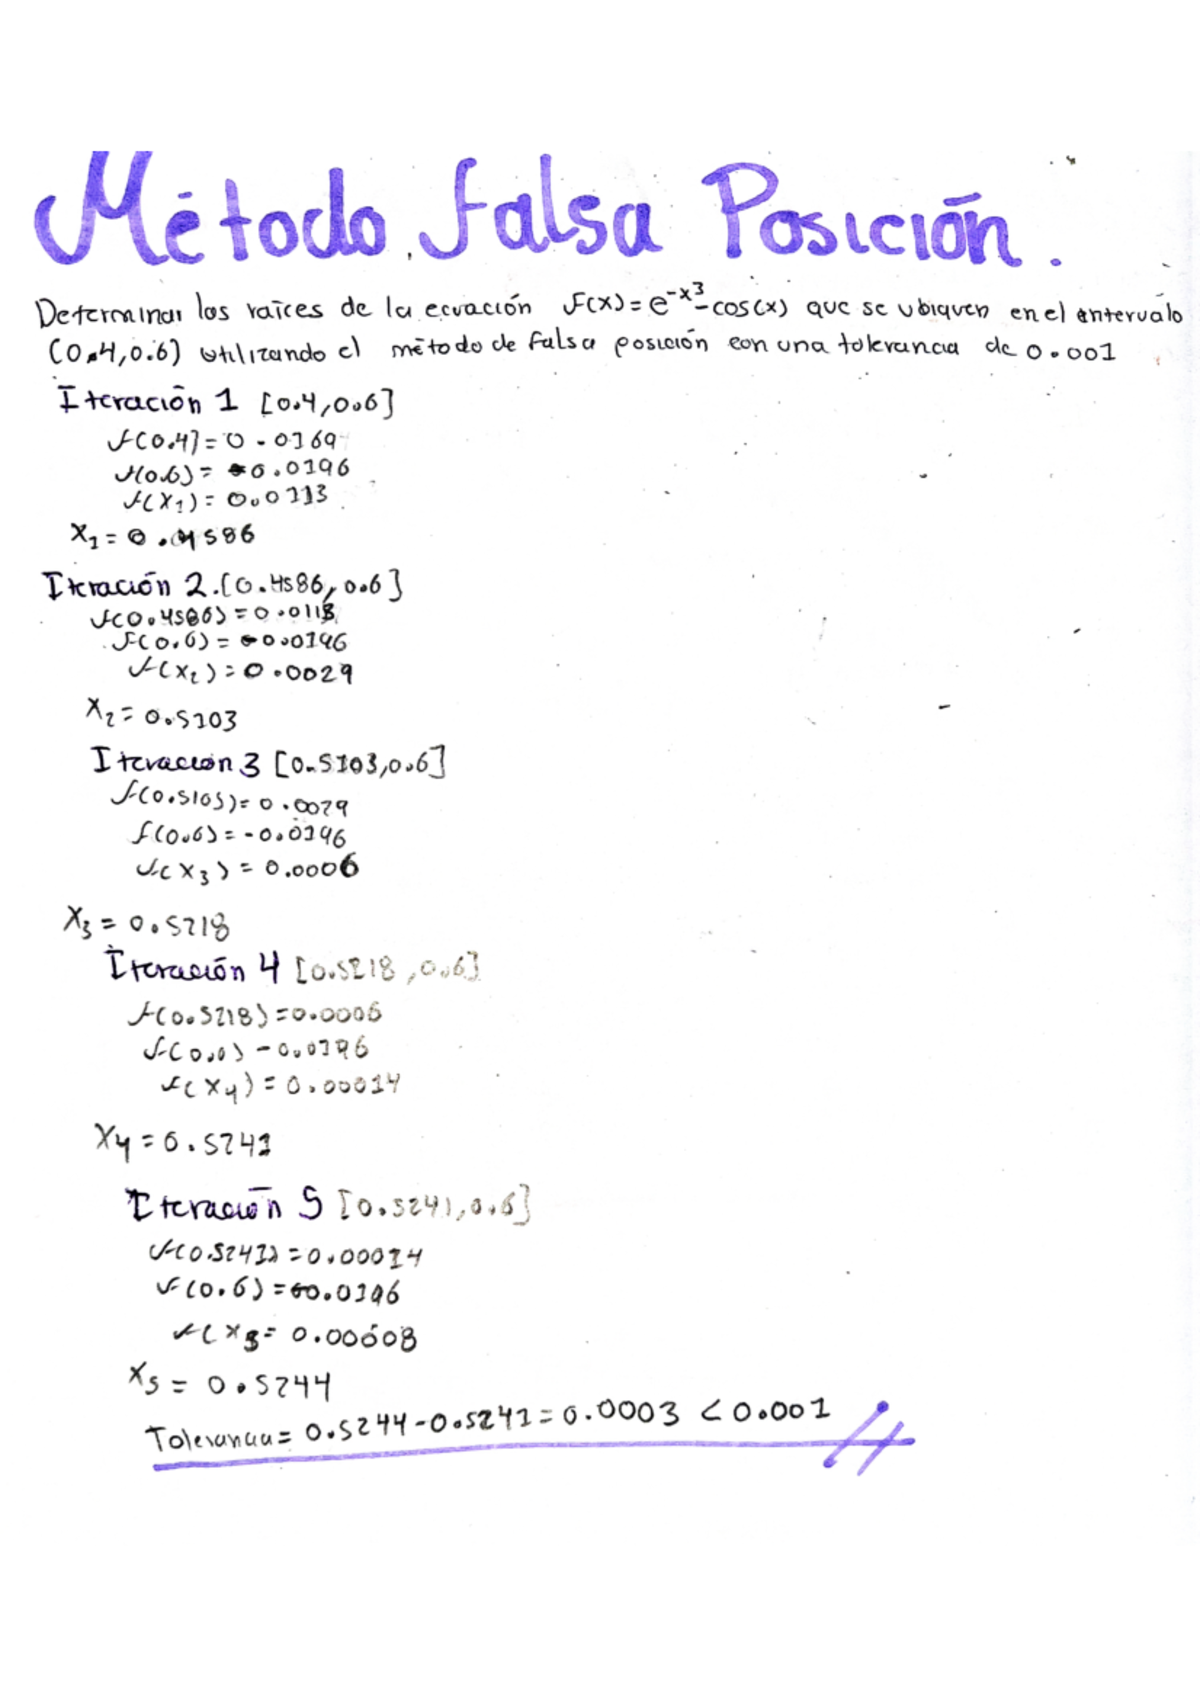 Método Falsa Posición.
Determinar las raíces de la ecuación f(x)=e^-x^3-cos(x) que se ubiquen en el intervalo
(0.4,0.6) utilizando el método de falsa posición con una tolerancia de 0.001
Iteración 1 [0.4,0.6]
f(0.4]=0.0169
f(0.6)=-0.0196
f(x1)=0.0113
x1=0.4586
Iteración 2.[0.4586,0.6]
f(0.4586)=0.0113
f(0.6)=-0.0196
f(x2)=0.0029
x2=0.5103
Iteración 3 [0.5103,0.6]
f(0.5103)=0.0029
f(0.6)=-0.0196
f(x3)=0.0006
x3=0.5218
Iteración 4 [0.5218,0.6]
f(0.5218)=0.0006
f(0.6) -0.0196
f(x4)=0.00014
x4=0.5241
Iteración 5 [0.5241,0.6]
f(0.5241)=0.00014
f(0.6)=-0.0196
f(x5=0.00008
x5=0.5244
Tolerancia=0.5244-0.5241=0.0003 <0.001